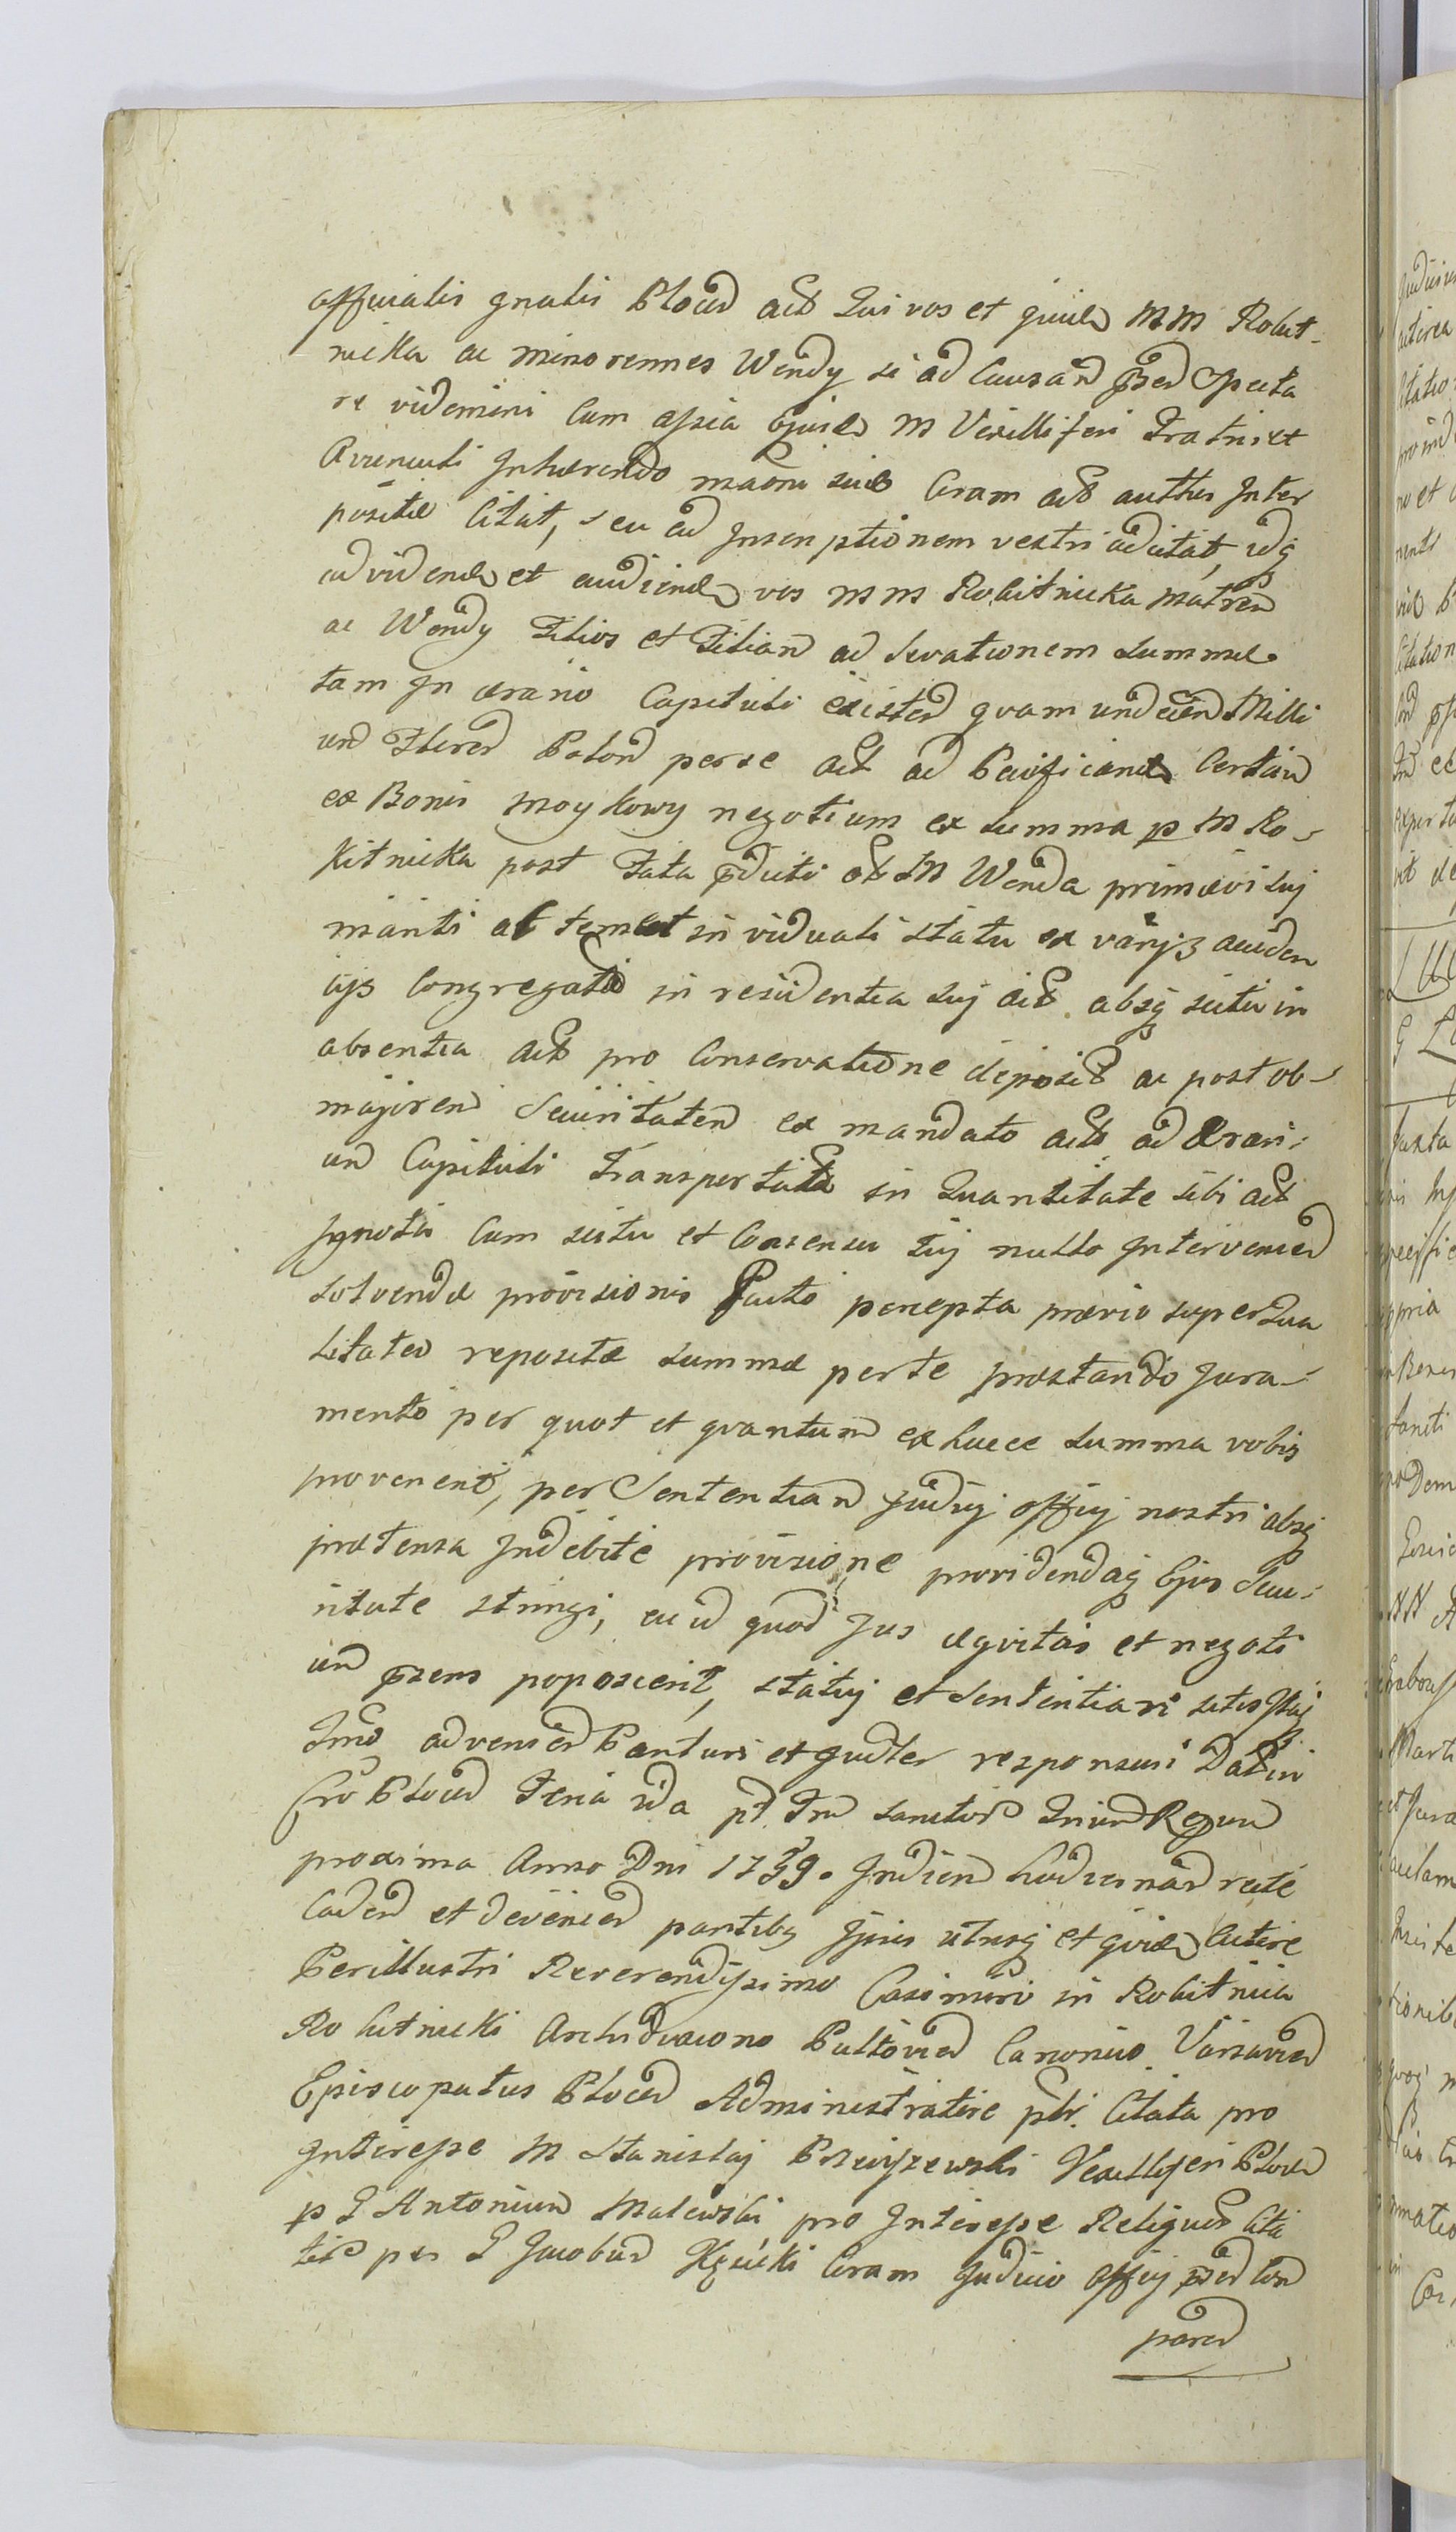 officialis gnalis Plocen act Qui vos et quilt MM Rokit-
nicka ac minorennes Wendy si ad Causam psen specta
re videmini Cum assia ejusd M Vexilliferi Fratris et
Avunculi Inhærendo maõni suæ Coram act authen Inter
positæ Citat, seu ad Inscriptionem vestri adcitat, idq
ad videnď et audienď vos MM Rokitnicka Matrem
ac Wendy Filios et Filiam ad levationem summæ
tam In ærario Capituli existen quam undecim Milli
um Floren Polon per se act ad Pacificand Certum
ex Bonis Moykowy negotium ex summa p M Ro-
kitnicka post Fata pduti M Wenda primævi sui
mariti in viduali statu ex varijs acciden
tijs Congregata in residentia suj act absq scitu in
absentia act pro Conservatione deposit ac post ob-
majorem Securitatem ex mandato act ad ærari-
um Capituli Transportata in Quantitate sibi act
Ignota Cum scitu et Consensu suj nullo Intervenien
solvendæ provisionis Pacto percepta prævio super Qua
litate repositæ summæ per te præstando Jura-
mento per quot et quantum ex huece summa vobis
provenerit, per Sententiam Judicij officij nostri absq
prætensa Indebite provisione providendaq Ejus Secu-
ritate stringi, ac id quod Jus æquitas et negoti
um psens poposcerit, statuj et Sententiari sitis Itaq
Imo advenien Parituri et Judler responsuri Dat in
Cro Plocen Feria IIda pt Fm Sanctor Trium Regum
proxima Anno Dni 1759. In diem hodiernam recte
Caden et devenien partibq Ipsis utrisq et quidem Actore
Perillustri Reverendissimo Casimiro in Rokitnica
Rokitnicki Archidiacono Pultovien Canonico Varsavien
Episcopatus Plocen Administratore plr. Citata pro
Interesse M Stanislaj Vexilliferi Plocen
p G Antonium Malewski pro Interesse Reliquor Cita
tor per G Jacobum Kęsicki Coram Judicio Officij psen Con
paren